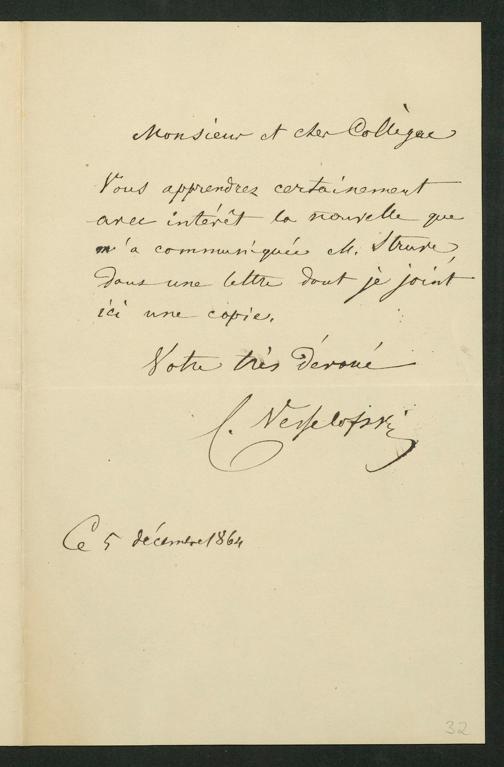 Monsieur et cher Collègue
Vous apprendrez certainement
avec intérêt la nouvelle que
m'a communiquée M. Struve
dans une lettre dont je joint
ici une copie.
Votre très dévoué
C. Vesselofski
Ce 5 décembre 1864
32